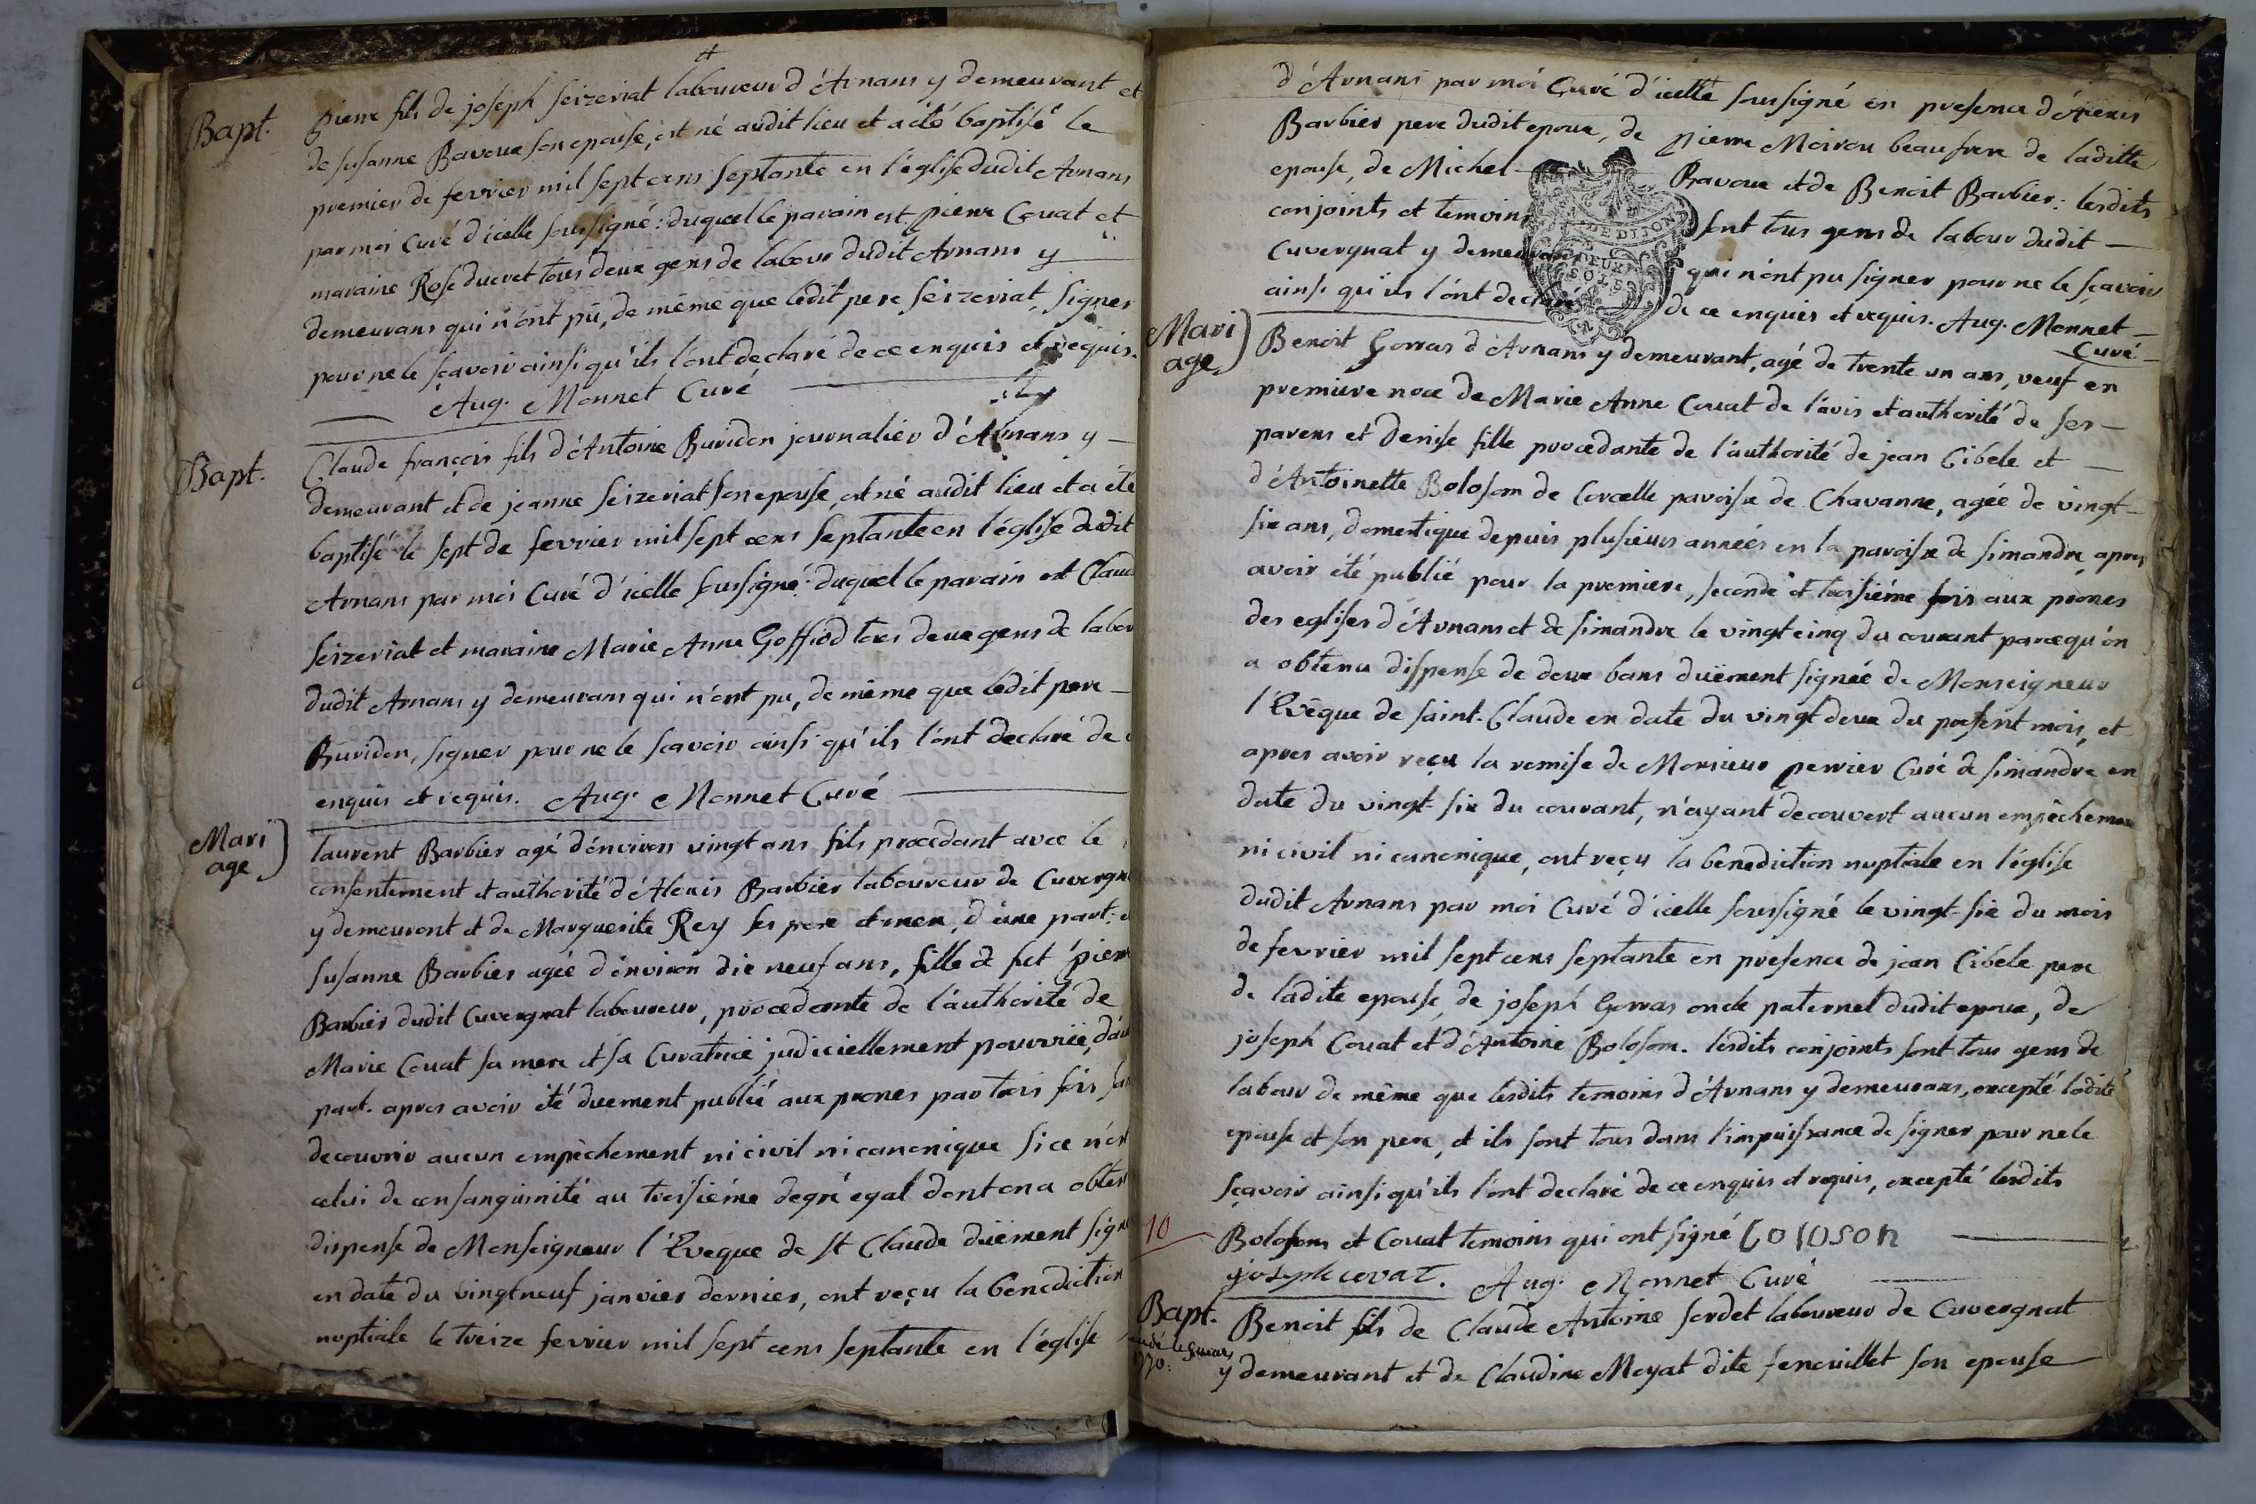 Bapt.
pierre fils de joseph seizeriat laboureur d'Arnans y demeurant et
de susanne Bavoux son epouse, est né audit lieu et a été baptisé le
premier de fevrier mil sept cens septante en l'église dudit Arnans
par moi Curé d'icelle soussigné: duquel le parain est pierre Couat et
maraine Rose ducret tous deux gens de labour dudit Arnans y
demeurans qui n'ont pû, de même que ledit pere seizeriat, signer
pour ne le sçavoir ainsi qu'ils l'ont declaré de ce enquis et requis.
Aug. Monnet Curé
Bapt.
Claude françois fils d'Antoine Buridon journalier d'Arnans y
demeurant et de jeanne seizeriat son epouse, est né audit lieu et a été
baptisé le sept de fevrier mil sept cens septante en l'église dudit
Arnans par moi Curé d'icelle soussigné: duquel le parain est Claud
seizeriat et maraine Marie Anne Goffiod tous deux gens de labou
dudit Arnans y demeurans qui n'ont pu, de même que ledit pere
Buridon, signer pour ne le scavoir ainsi qu'ils l'ont declaré de
enquis et requis. Aug. Monnet Curé
Mari
age
laurent Barbier agé d'environ vingt ans fils procedant avec le
consentement et authorité d'Alexis Barbier laboureur de Cuvergn
y demeurant et de Marguerite Rey ses pere et mere, d'une part: e
susanne Barbier agée d'environ dix neuf ans, fille de fut pierre
Barbier dudit Cuvergnat laboureur, procedante de l'authorité de
Marie Couat sa mere et sa Curatrice judiciellement pourvüe, d'au
part. apres avoir été duement publié aux prones par trois fois, san
decouvrir aucun empêchement ni civil ni canonique si ce n'est
celui de consanguinité au troisiéme degré egal dont on a obten
dispense de Monseigneur l'Eveque de st Claude düement sign
en date du vingt neuf janvier dernier, ont reçu la benediction
nuptiale le treize fevrier mil sept cens septante en l'église
d'Arnans par moi Curé d'icelle soussigné en presence d'Alexis
Barbier pere dudit epoux, de pierre Moirou beau frere de laditte
epouse, de Michel Ravoux et de Benoit Barbier: lesdits
conjoints et temoins sont tous gens de labour dudit
Cuvergnat y demeurans qui n'ont pu signer pour ne le sçavoir
ainsi qu'ils l'ont declaré de ce enquis et requis. Aug. Monnet
Curé
DE DIJON
DEUX
SOLS
Mari
age
Benoit Gorras d'Arnans y demeurant, agé de trente un ans, veuf en
premiere noce de Marie Anne Couat de l'avis et authorité de ses
parens et Denise fille procedante de l'authorité de jean Cibele et
d'Antoinette Boloson de Corcelle paroisse de Chavanne, agée de vingt
six ans, domestique depuis plusieurs années en la paroisse de simandre, apres
avoir été publié pour la premiere, seconde et troisiéme fois aux prones
des eglises d'Arnans et de simandre le vingt cinq du courant parcequ'on
a obtenu dispense de deux bans düement signée de Monseigneur
l'Evêque de saint-Claude en date du vingt deux du present mois, et
apres avoir reçu la remise de Monsieur perrier Curé de simandre en
date du vingt-six du courant, n'ayant decouvert aucun empêchemen
ni civil ni canonique, ont reçu la benediction nuptiale en l'église
dudit Arnans par moi Curé d'icelle soussigné le vingt-six du mois
de fevrier mil sept cens septante en présence de jean Cibele pere
de ladite epouse, de joseph Gorras oncle paternel dudit epoux, de
joseph Couat et d'Antoine Boloson. lesdits conjoints sont tous gens de
labour de même que lesdits temoins d'Arnans y demeurans, excepté ladite
epouse et son pere, et ils sont tous dans l'impuissance de signer pour ne le
sçavoir ainsi qu'ils l'ont declaré de ce enquis et requis, excepté lesdits
10
Boloson et Couat temoins qui ont signé boloson
joseph covat. Aug. Monnet Curé
Bapt.
1770:
Benoit fils de Claude Antoine sordet laboureur de Cuvergnat
y demeurant et de Claudine Moyat dite fenouillet son epouse